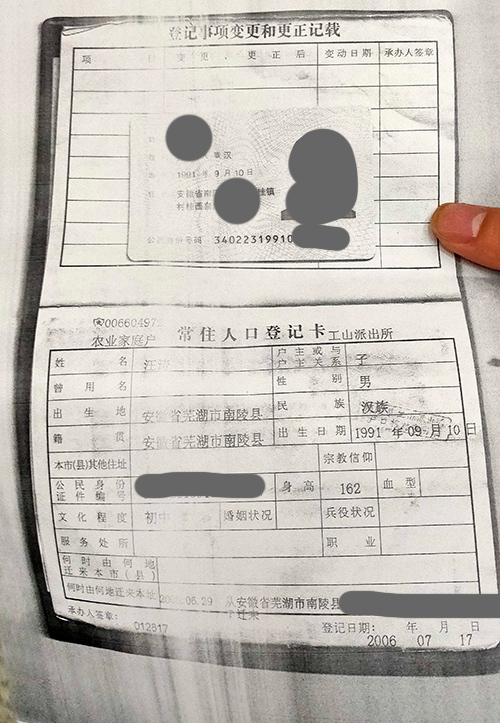 登记事项变更和更正记载
项 目 变更、更正后 变动日期 承办人签章
汉
1991 年 9 月 10 日
安徽省南 桂镇
公民身份号码 34022319910
00660497
农业家庭户 常住人口登记卡 工山派出所
姓名 汪 户主或与户主关系 子
曾用名 性别 男
出生地 安徽省芜湖市南陵县 民族 汉族
籍贯 安徽省芜湖市南陵县 出生日期 1991 年 09 月 10 日
本市(县)其他住址 宗教信仰
公民身份证件编号 身高 162 血型
文化程度 初中 婚姻状况 兵役状况
服务处所 职业
何时由何地迁来本市(县)
何时由何地迁来本址 .06.29 从安徽省芜湖市南陵县
迁来
承办人签章: 012817 登记日期: 年 月 日
2006 07 17